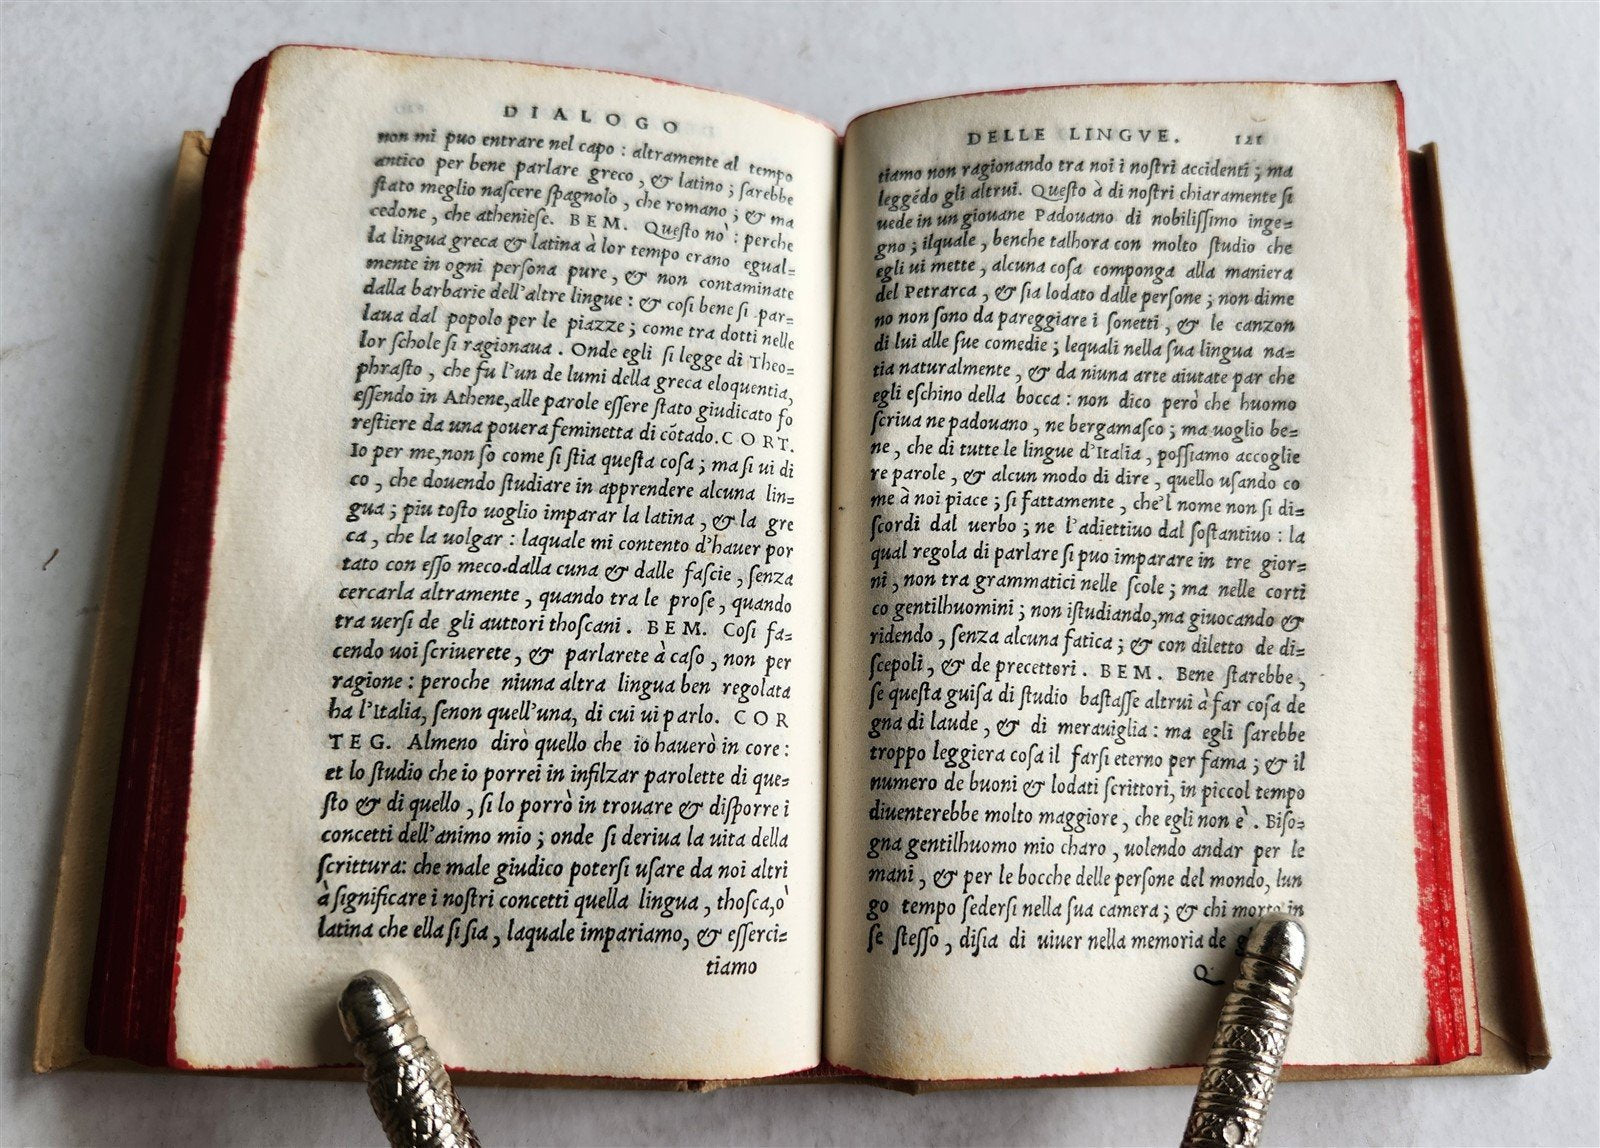 DIALOGO
non mi puo entrare nel capo : altramente al tempo
antico per bene parlare greco, & latino ; sarebbe
stato meglio nascere spagnolo, che romano ; & ma
cedone, che atheniese. BEM. Questo nò : perche
la lingua greca & latina à lor tempo erano egual=
mente in ogni persona pure, & non contaminate
dalla barbarie dell'altre lingue : & cosi bene si par=
laua dal popolo per le piazze ; come tra dotti nelle
lor schole si ragionaua. Onde egli si legge di Theo=
phrasto, che fu l'un de lumi della greca eloquentia,
essendo in Athene, alle parole essere stato giudicato fo
restiere da una pouera feminetta di cōtado. CORT.
Io per me, non so come si stia questa cosa ; ma si ui di
co, che douendo studiare in apprendere alcuna lin=
gua ; piu tosto uoglio imparar la latina, & la gre
ca, che la uolgar : laquale mi contento d'hauer por
tato con esso meco dalla cuna & dalle fascie, senza
cercarla altramente, quando tra le prose, quando
tra uersi de gli auttori thoscani. BEM. Cosi fa=
cendo uoi scriuerete, & parlarete à caso, non per
ragione : peroche niuna altra lingua ben regolata
ha l'Italia, senon quell'una, di cui ui parlo. COR
TEG. Almeno dirò quello che io hauerò in core :
et lo studio che io porrei in infilzar parolette di que=
sto & di quello, si lo porrò in trouare & disporre i
concetti dell'animo mio ; onde si deriua la uita della
scrittura: che male giudico potersi usare da noi altri
à significare i nostri concetti quella lingua, thosca, ò
latina che ella si sia, laquale impariamo, & esserci=
tiamo
DELLE LINGVE. 121
tiamo non ragionando tra noi i nostri accidenti ; ma
leggēdo gli altrui. Questo à di nostri chiaramente si
uede in un giouane Padouano di nobilissimo inge=
gno ; ilquale, benche talhora con molto studio che
egli ui mette, alcuna cosa componga alla maniera
del Petrarca, & sia lodato dalle persone ; non dime
no non sono da pareggiare i sonetti, & le canzon
di lui alle sue comedie ; lequali nella sua lingua na=
tia naturalmente, & da niuna arte aiutate par che
egli eschino della bocca : non dico però che huomo
scriua ne padouano, ne bergamasco ; ma uoglio be=
ne, che di tutte le lingue d'Italia, possiamo accoglie
re parole, & alcun modo di dire, quello usando co
me à noi piace ; si fattamente, che'l nome non si di=
scordi dal uerbo ; ne l'adiettiuo dal sostantiuo : la
qual regola di parlare si puo imparare in tre gior=
ni, non tra grammatici nelle scole ; ma nelle corti
co gentilhuomini ; non istudiando, ma giuocando &
ridendo, senza alcuna fatica ; & con diletto de di=
scepoli, & de precettori. BEM. Bene starebbe,
se questa guisa di studio bastasse altrui à far cosa de
gna di laude, & di merauiglia : ma egli sarebbe
troppo leggiera cosa il farsi eterno per fama ; & il
numero de buoni & lodati scrittori, in piccol tempo
diuenterebbe molto maggiore, che egli non è. Biso=
gna gentilhuomo mio charo, uolendo andar per le
mani, & per le bocche delle persone del mondo, lun
go tempo sedersi nella sua camera ; & chi morto in
se stesso, disia di uiuer nella memoria de
Q